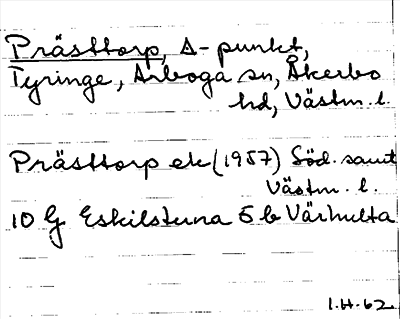 Prästtorp, Δ-punkt,
Tyringe, Arboga sn, Åkerbo
hd, Västm. l.
Prästtorp ek (1957) Söd. samt
Västm. l.
10 G Eskilstuna 5 b Värhulta
I.H. 62